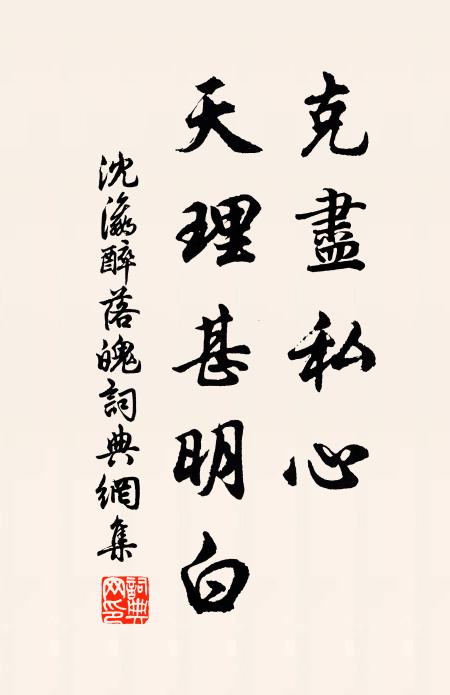 克盡私心
天理甚明白
沈瀛醉落魄詞典網集
詞典網印